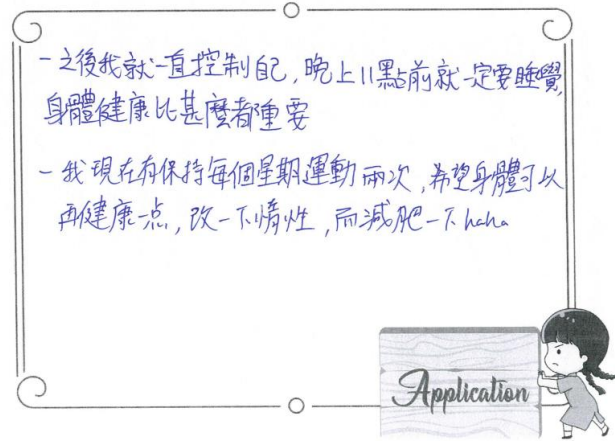 - 之後我就一直控制自己，晚上11點前就一定要睡覺，
身體健康比甚麼都重要
- 我現在有保持每個星期運動兩次，希望身體可以
再健康一点，改一下惰性，而減肥一下haha
Application